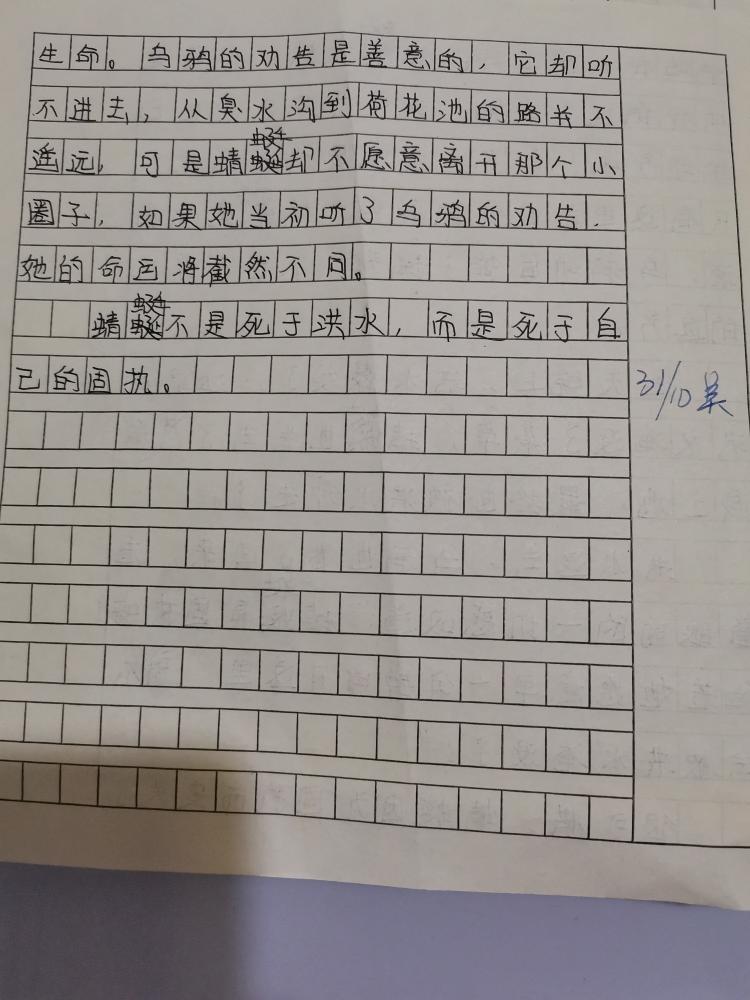 生命。乌鸦的劝告是善意的，它却听
不进去，从臭水沟到荷花池的路并不
遥远，可是蜻蜓却不愿意离开那个小
圈子，如果她当初听了乌鸦的劝告，
她的命运将截然不同。
蜻蜓不是死于洪水，而是死于自
己的固执。
31/10